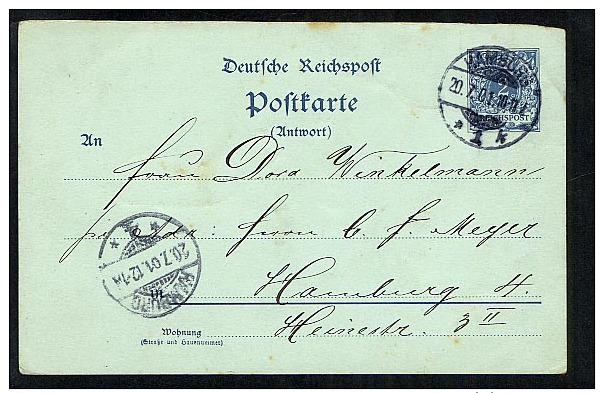 Deutsche Reichspost
Postkarte
(Antwort)
HAMBURG
20.7.01. 10-11
* 1 k
REICHSPOST
An
Frau Dora Winkelmann
Adr: Herrn C. F. Meyer
* 1 *
20.7.01. 12-1
HAMBURG
in
Hamburg 4.
Heinestr. 3 II
Wohnung
(Straße und Hausnummer)